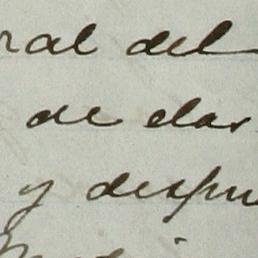 ral del
de clas
y despu